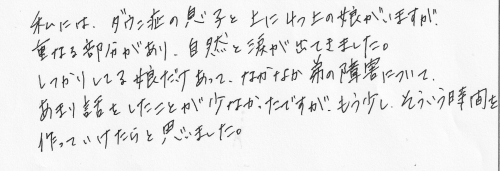 私には、ダウン症の息子と上に4つ上の娘がいますが、
重なる部分があり、自然と涙が出てきました。
しっかりしてる娘だけあって、なかなか弟の障害について、
あまり話をしたことが少なかったですが、もう少し、そういう時間を
作っていけたらと思いました。